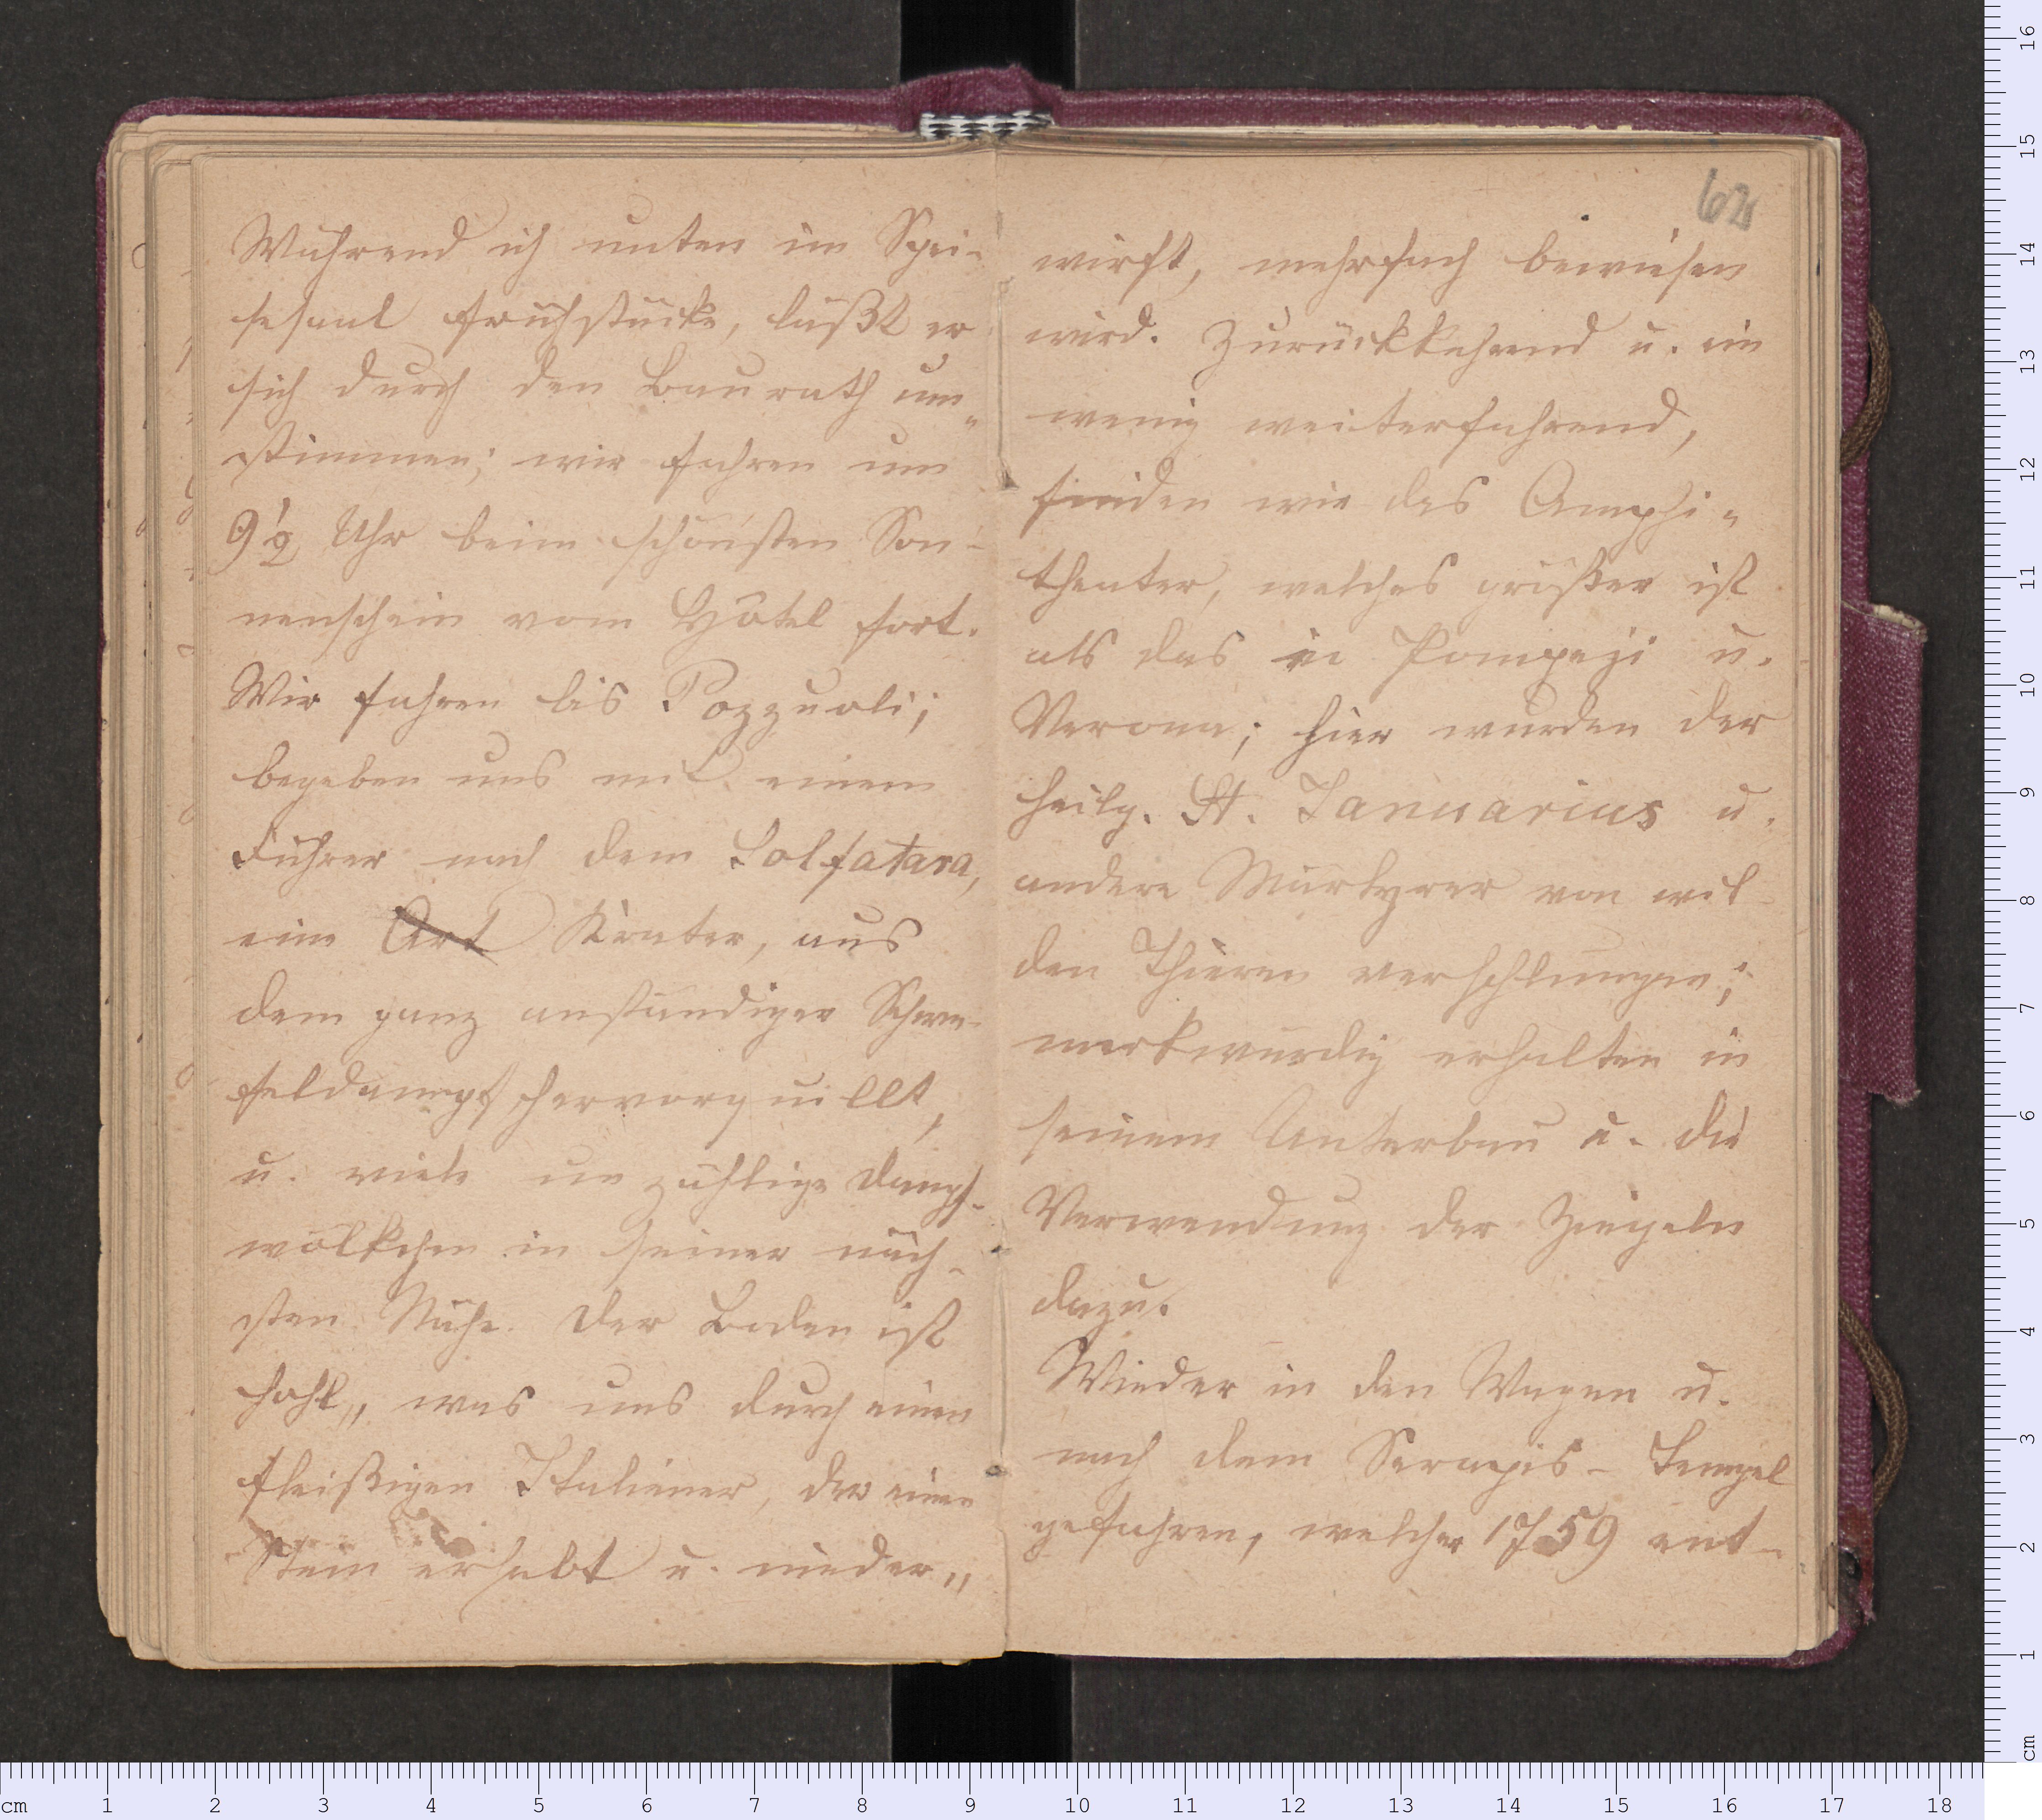 Während ich unten im Spei-
sesaal frühstücke, läßt er
sich durch den Baurath um-
stimmen; wir fahren um
9½ Uhr beim schönsten Son-
nenschein vom Hôtel fort.
Wir fahren bis Pozzuoli;
begeben uns mit einem
Führer nach dem Solfatara,
eine Art Krater, aus
dem ganz anständiger Schwe-
feldampf hervorquillt,
u. viele unzählige Dampf-
wölkchen in seiner näch-
sten Nähe. Der Boden ist
hohl, was uns durch einen
fleißigen Italiener, der einen
Stein erhebt u. nieder-
62
wirft, mehrfach bewiesen
wird. Zurückkehrend u. ein
wenig weiterfahrend,
finden wir das Amphi-
theater, welches größer ist
als das in Pompeji u.
Verona; hier wurden der
heilg. St. Januarius u.
andere Märtyrer von wil-
den Thieren verschlungen;
merkwürdig erhalten in
seinem Unterbau u. die
Verwendung der Ziegeln
dazu.
Wieder in den Wagen u.
nach dem Serapis-Tempel
gefahren, welcher 1759 ent-